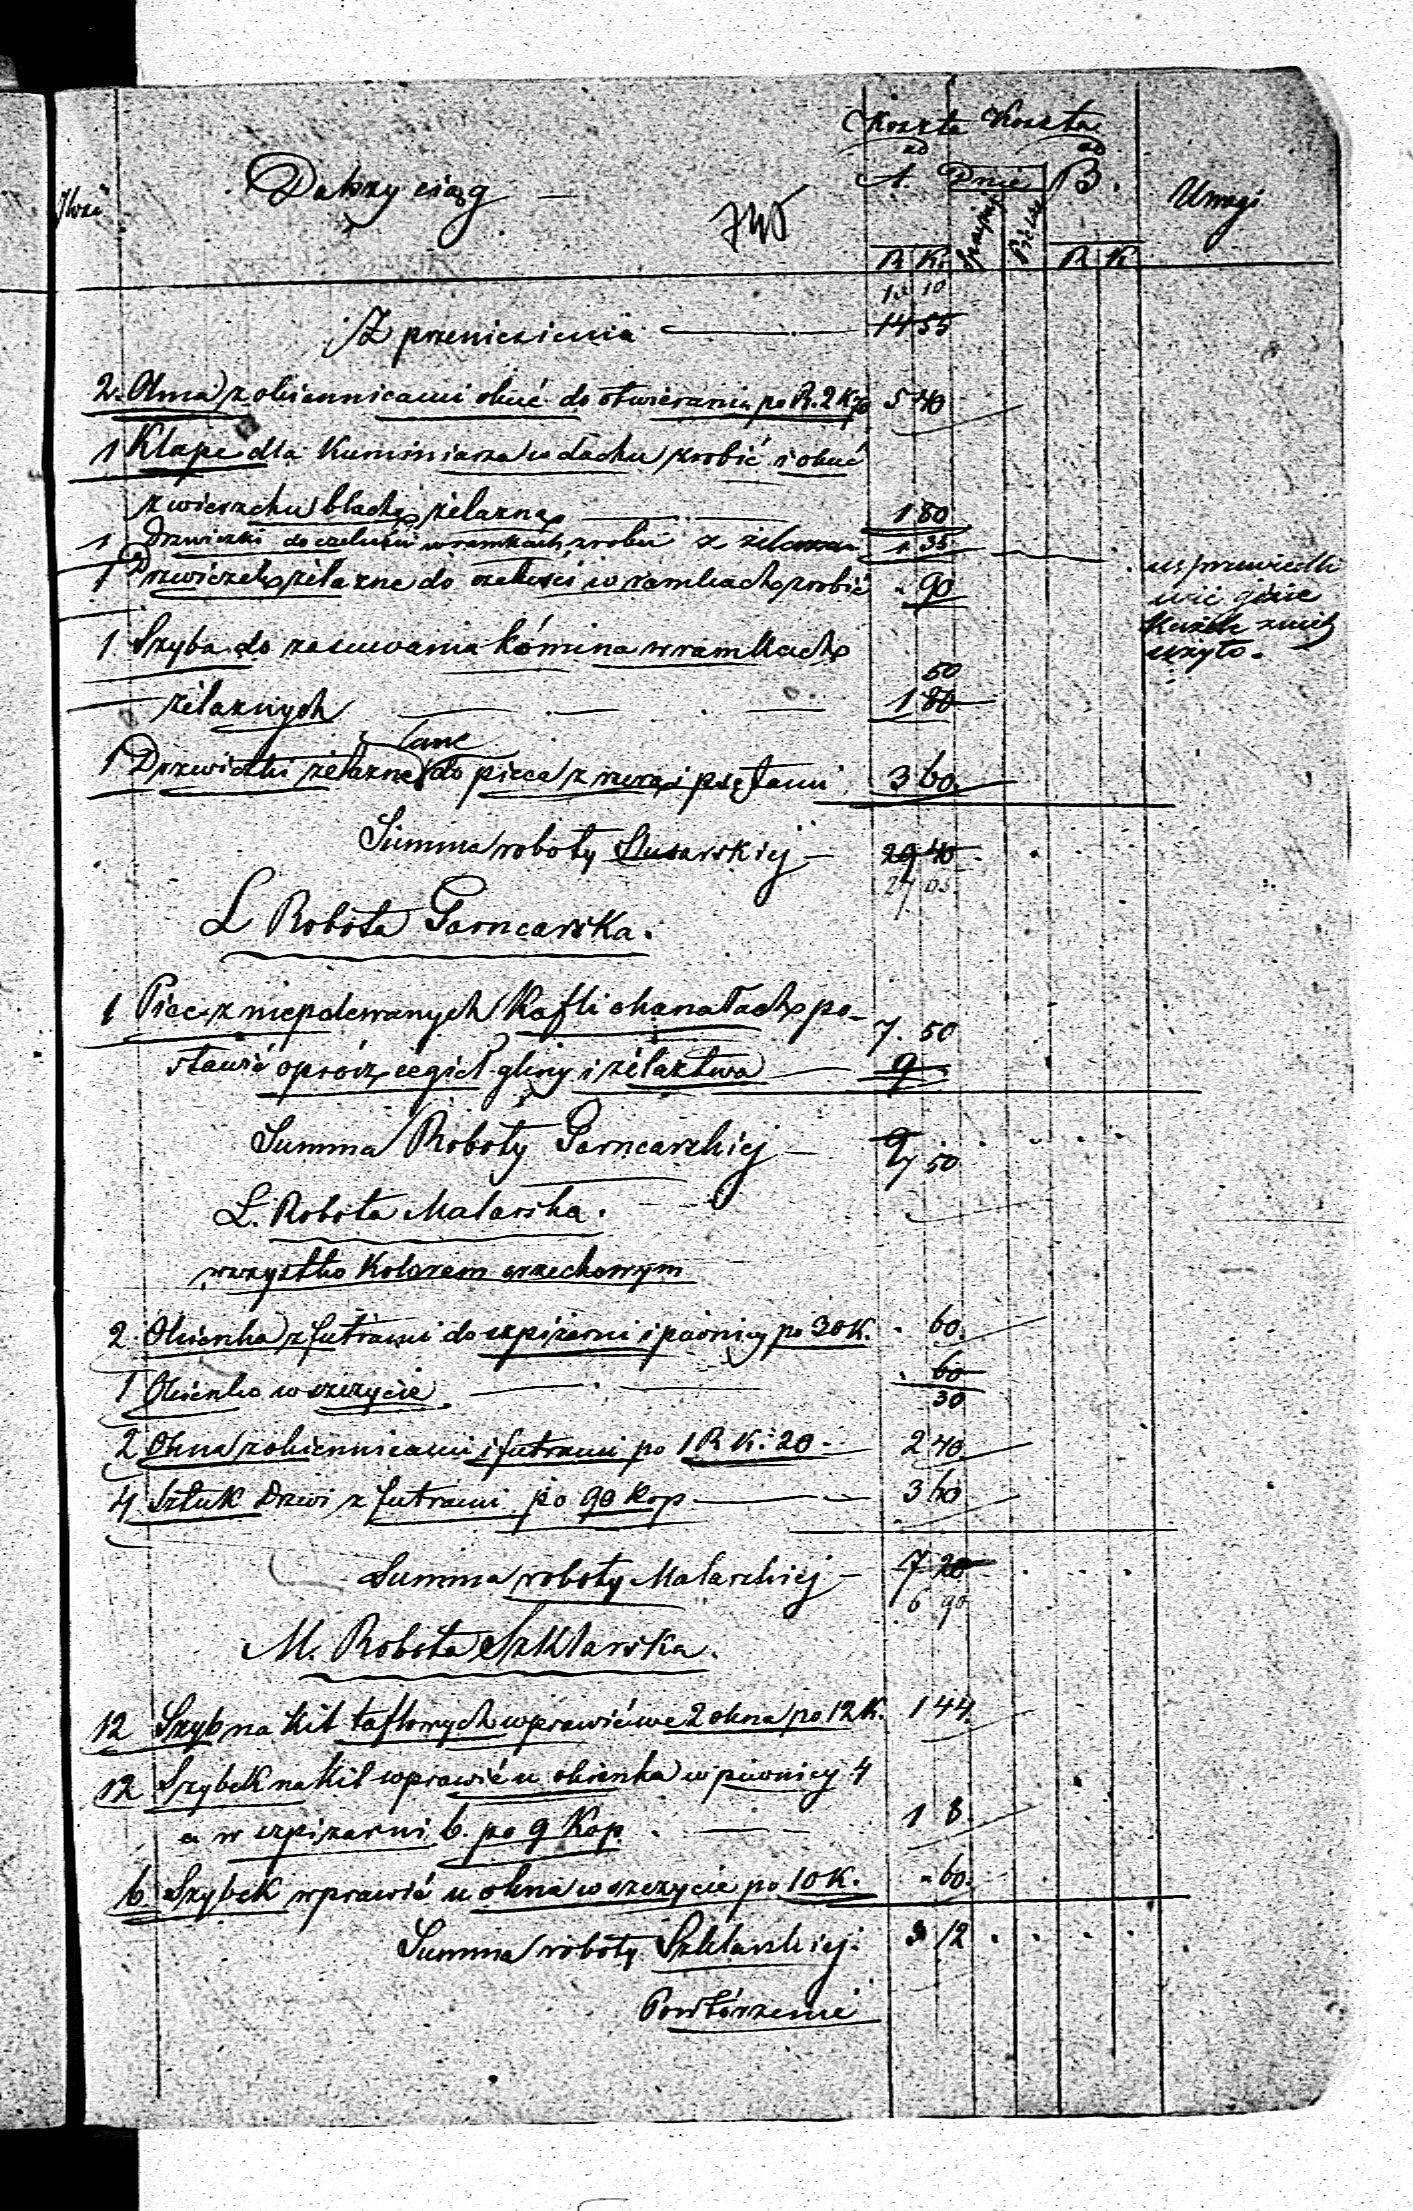 Ilość
Dalszy ciąg
Koszta ad A.
Dnie
Piesze
Koszta ad B.
Uwagi
R K.
R K
10
Z przeniesienia 14 55
2. Okna z okiennicami okuć do otwierania po R. 2 K. 70 5 40
1 Klapę dla Kuminiarza w dachu zrobić i okuć
z wierzchu blachą żelazną 1 80
1 Drzwiczki do czeluści w ramkach zrobić z żelaza 1. 35
1 Drzwiczek żelazne do czeluści w ramkach zrobić " 90
usprawiedli
wić gdzie
użyto.
1 Szyba do zasuwania komina w ramkach
50
żelaznych 1 80
lane
1 Drzwiczki żelazne do pieca z i 3 60.
Summa roboty Slusarskiej 29 40
27 05
L Robota Garncarska.
1 Piec z niepolewanych Kafli o kanałach po-
7. 50
stawić oprócz cegieł gliny i żelaztwa 9
Summa Roboty Garncarskiej 9
7 50
L. Robota Malarska.
wszystko Kolorem orzechowym
2 Okienka z futrami do szpiżarni i piwnicy po 30 K. " 60.
1 Okienko w szczycie " 60
30
2 Okna z okiennicami i futrami po 1 R K. 20 2 40.
4 Sztuk Drzwi z futrami po 90 kop 3 60
Summa roboty Malarskiej 7 20
6 90
M. Robota Szklarska.
12 Szyb na kit taflowych wprawić we 2 okna po 12 K. 1 44.
12 Szybek na kit wprawić u okienka w piwnicy 4
a w szpiżarni 6. po 9 Kop 1 8.
6 Szybek wprawić u okna w szczycie po 10 K. " 60.
Summa roboty Szklarskiej. 3 12
Powtórzenie